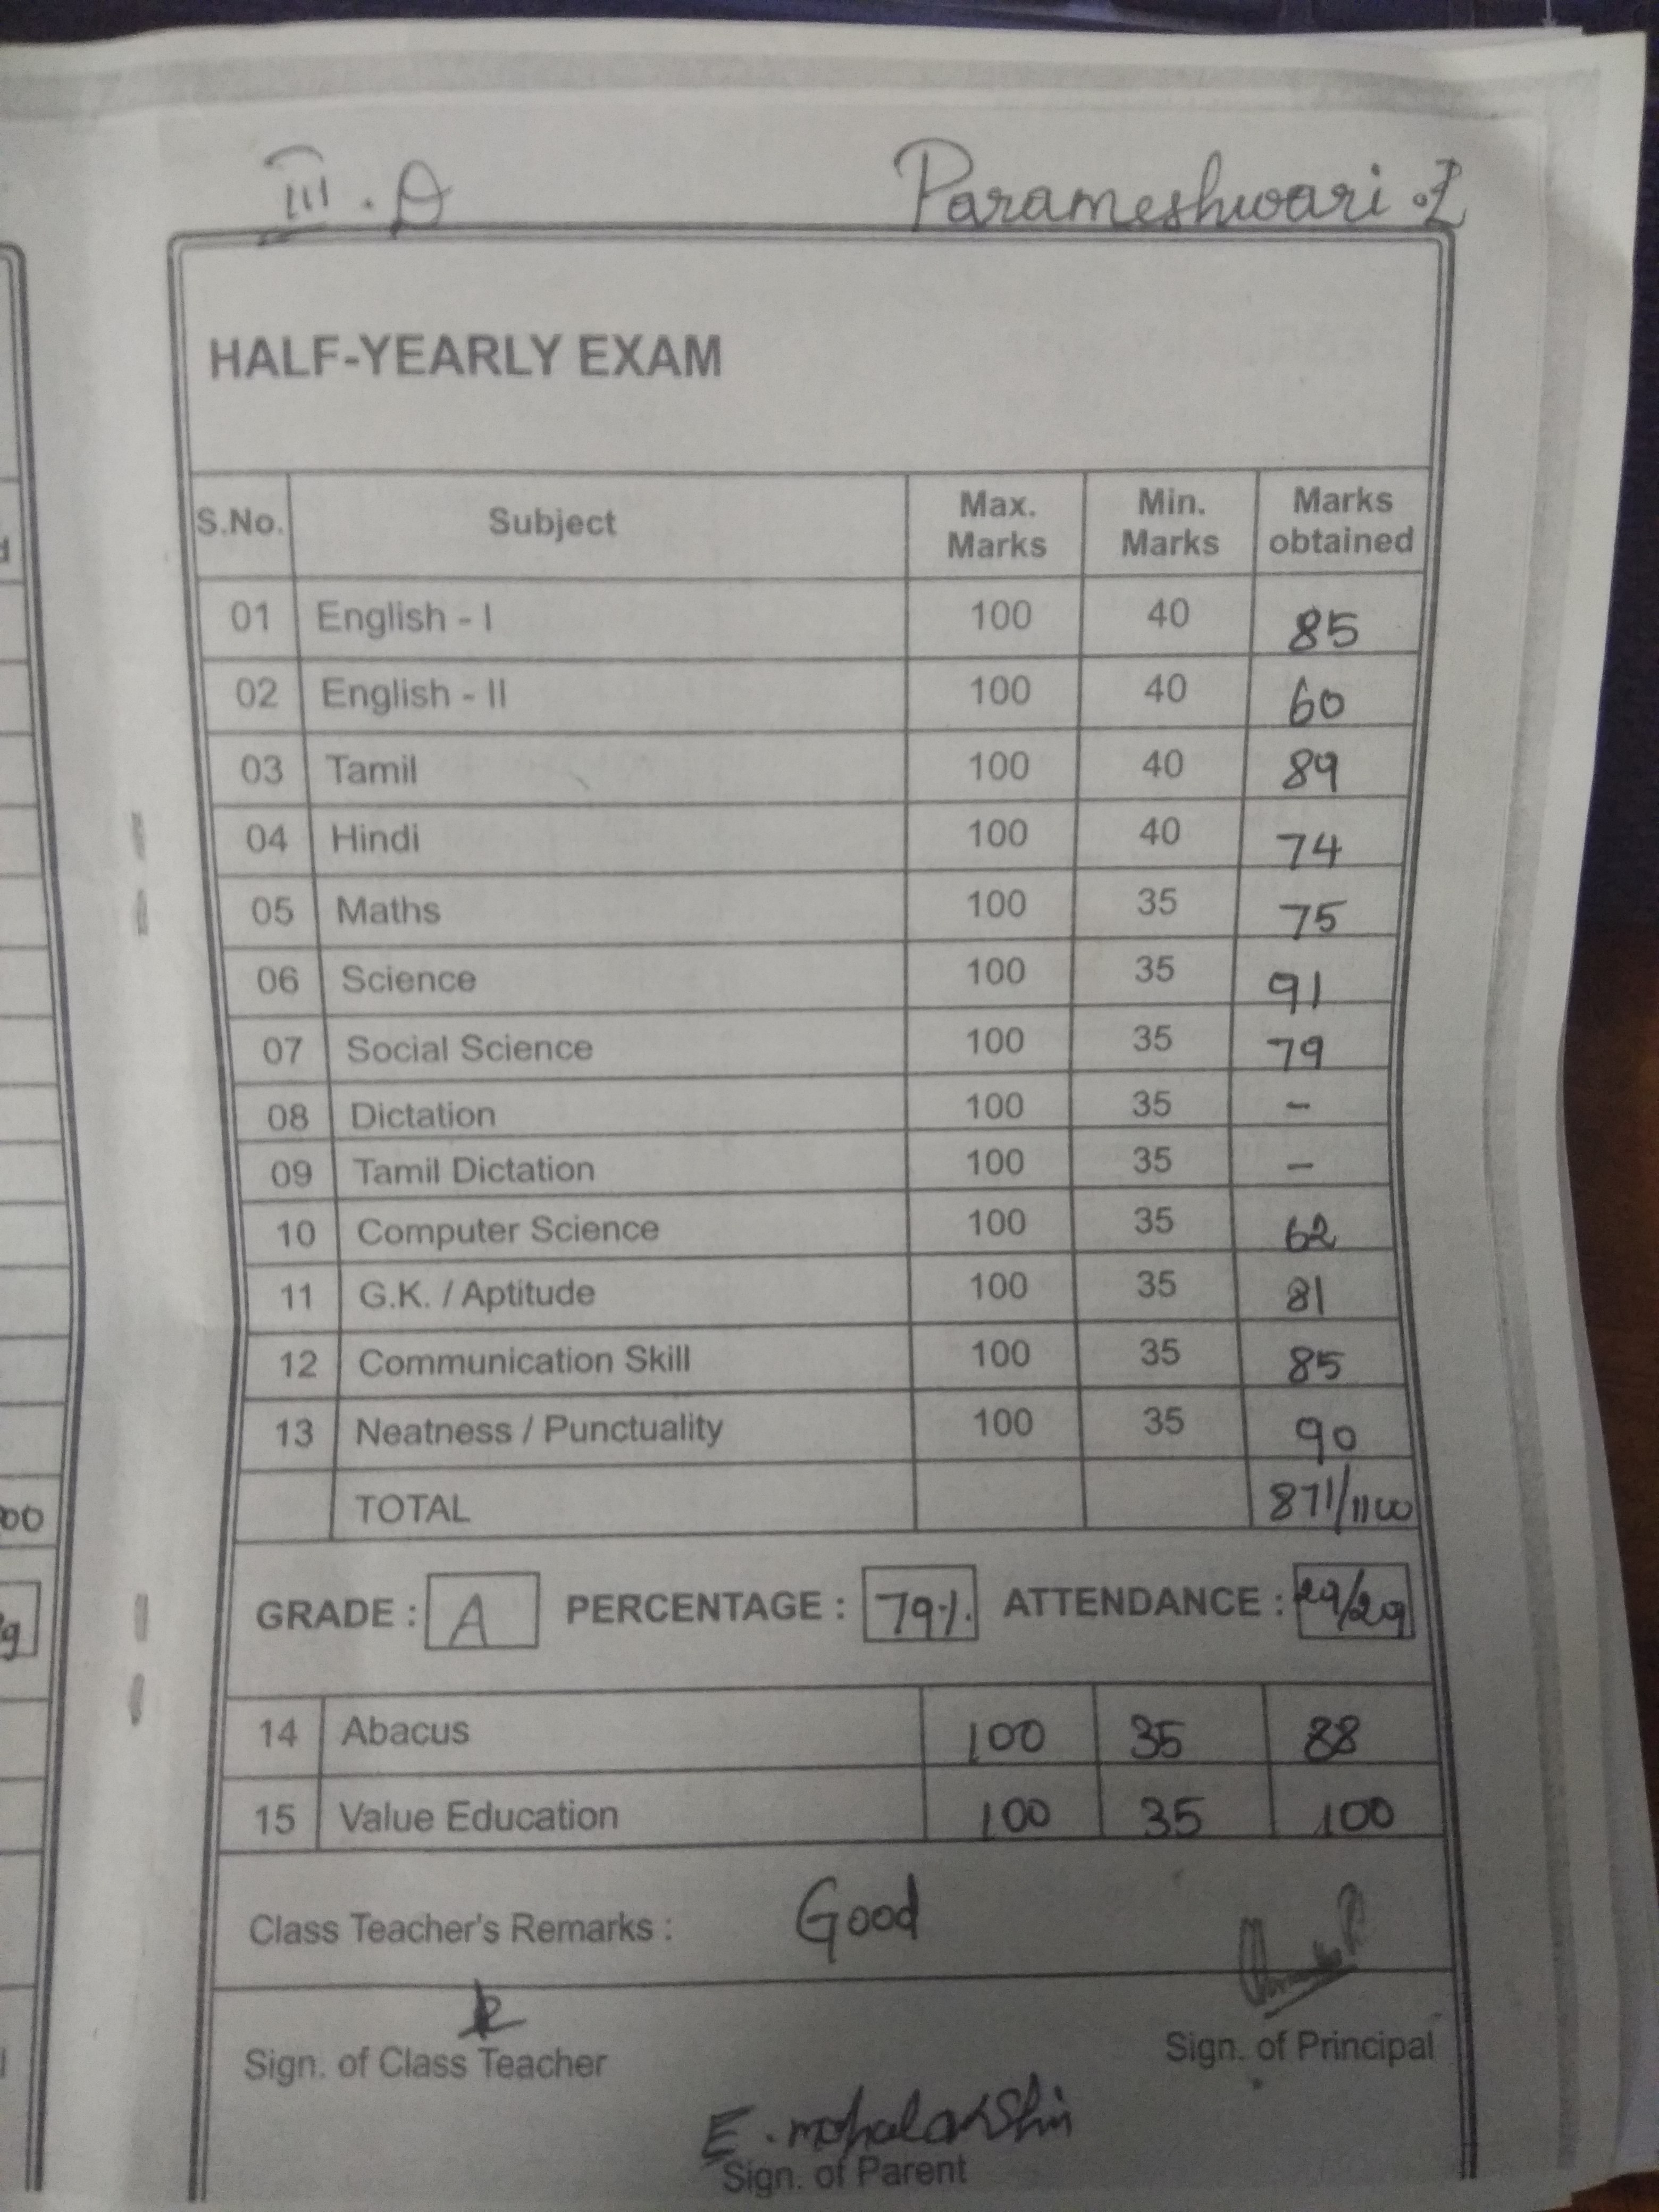 III . D Parameshwari .E
HALF-YEARLY EXAM
S.No. Subject Max. Marks Min. Marks Marks obtained
01 English - I 100 40 85
02 English - II 100 40 60
03 Tamil 100 40 89
04 Hindi 100 40 74
05 Maths 100 35 75
06 Science 100 35 91
07 Social Science 100 35 79
08 Dictation 100 35 -
09 Tamil Dictation 100 35 -
10 Computer Science 100 35 62
11 G.K. / Aptitude 100 35 81
12 Communication Skill 100 35 85
13 Neatness / Punctuality 100 35 90
TOTAL 871/1100
GRADE : A PERCENTAGE : 79% ATTENDANCE : 29/29
14 Abacus 100 35 88
15 Value Education 100 35 100
Class Teacher's Remarks : Good
Sign. of Class Teacher Sign. of Principal
E. mohalakshmi
Sign. of Parent